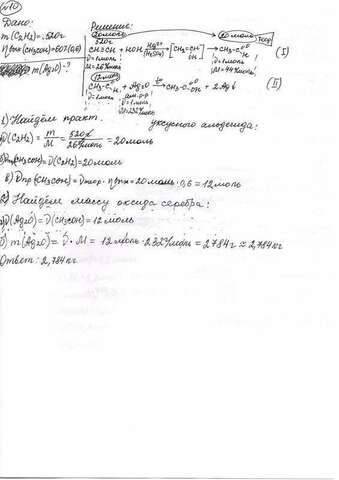 №10
Дано:
m(C2H2) = 520г
ηвых(CH3COH) = 60%(0,6)
m(Ag2O) - ?
Решение:
20 моль 20 моль теор
520г
CH≡CH + HOH → [CH2=CH OH] → CH3-C=O H (I)
Hg2+
(HgSO4)
ν=1моль ν=1моль
M=26г/моль M=44г/моль
12 моль
CH3-C=O H + Ag2O → CH3-C=O OH + 2Ag↓ (II)
t°
ам. р-р
ν=1моль ν=1моль
M=232г/моль
1) Найдём практ. уксусного альдегида:
ν(C2H2) = m/M = 520г/26г/моль = 20моль
(CH3COH) = ν(C2H2) = 20моль
в) νпр(CH3COH) = νтеор · ηвых = 20моль · 0,6 = 12моль
2) Найдём массу оксида серебра:
ν(Ag2O) = ν(CH3COH) = 12моль
m(Ag2O) = ν · M = 12моль · 232г/моль = 2784г ≈ 2,784кг
Ответ: 2,784кг